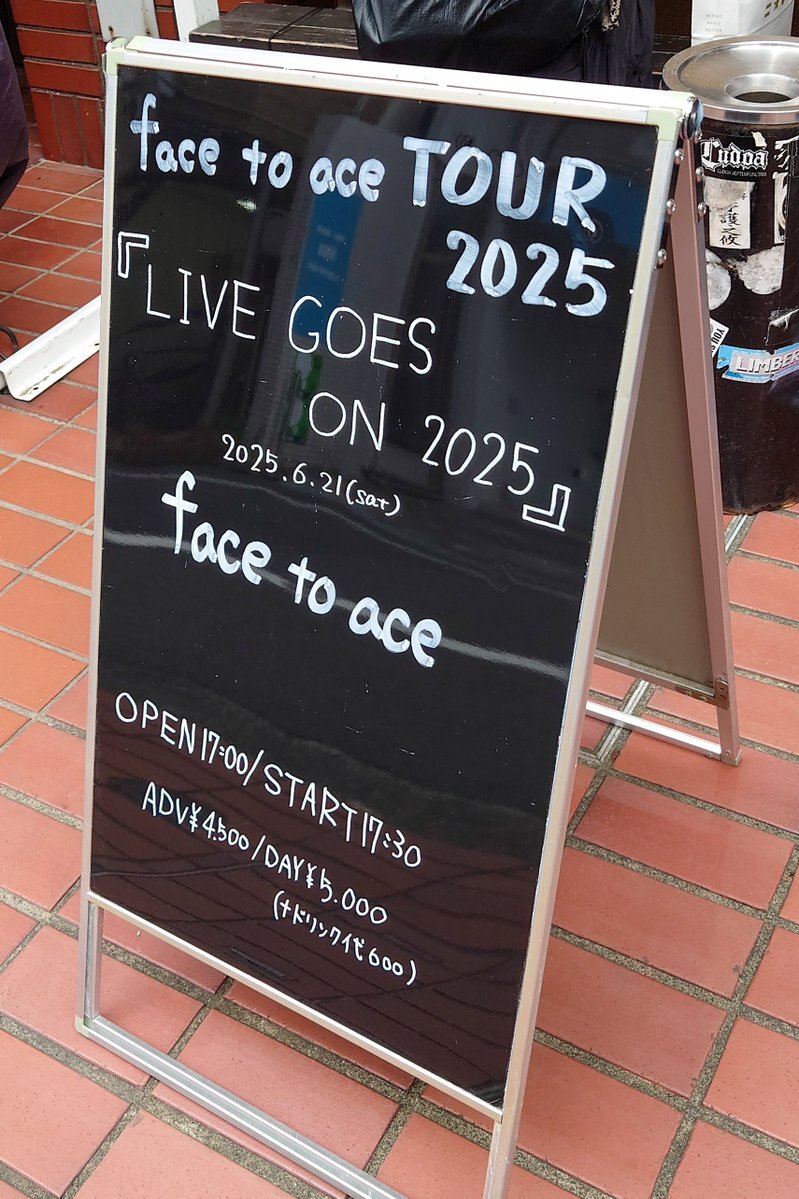 face to ace TOUR
2025
『LIVE GOES
ON 2025』
2025.6.21(sat)
face to ace
OPEN17:00/START17:30
ADV¥4.500/DAY¥5.000
(+ドリンク代600)
Ludoa
守護之攸
LIMBER